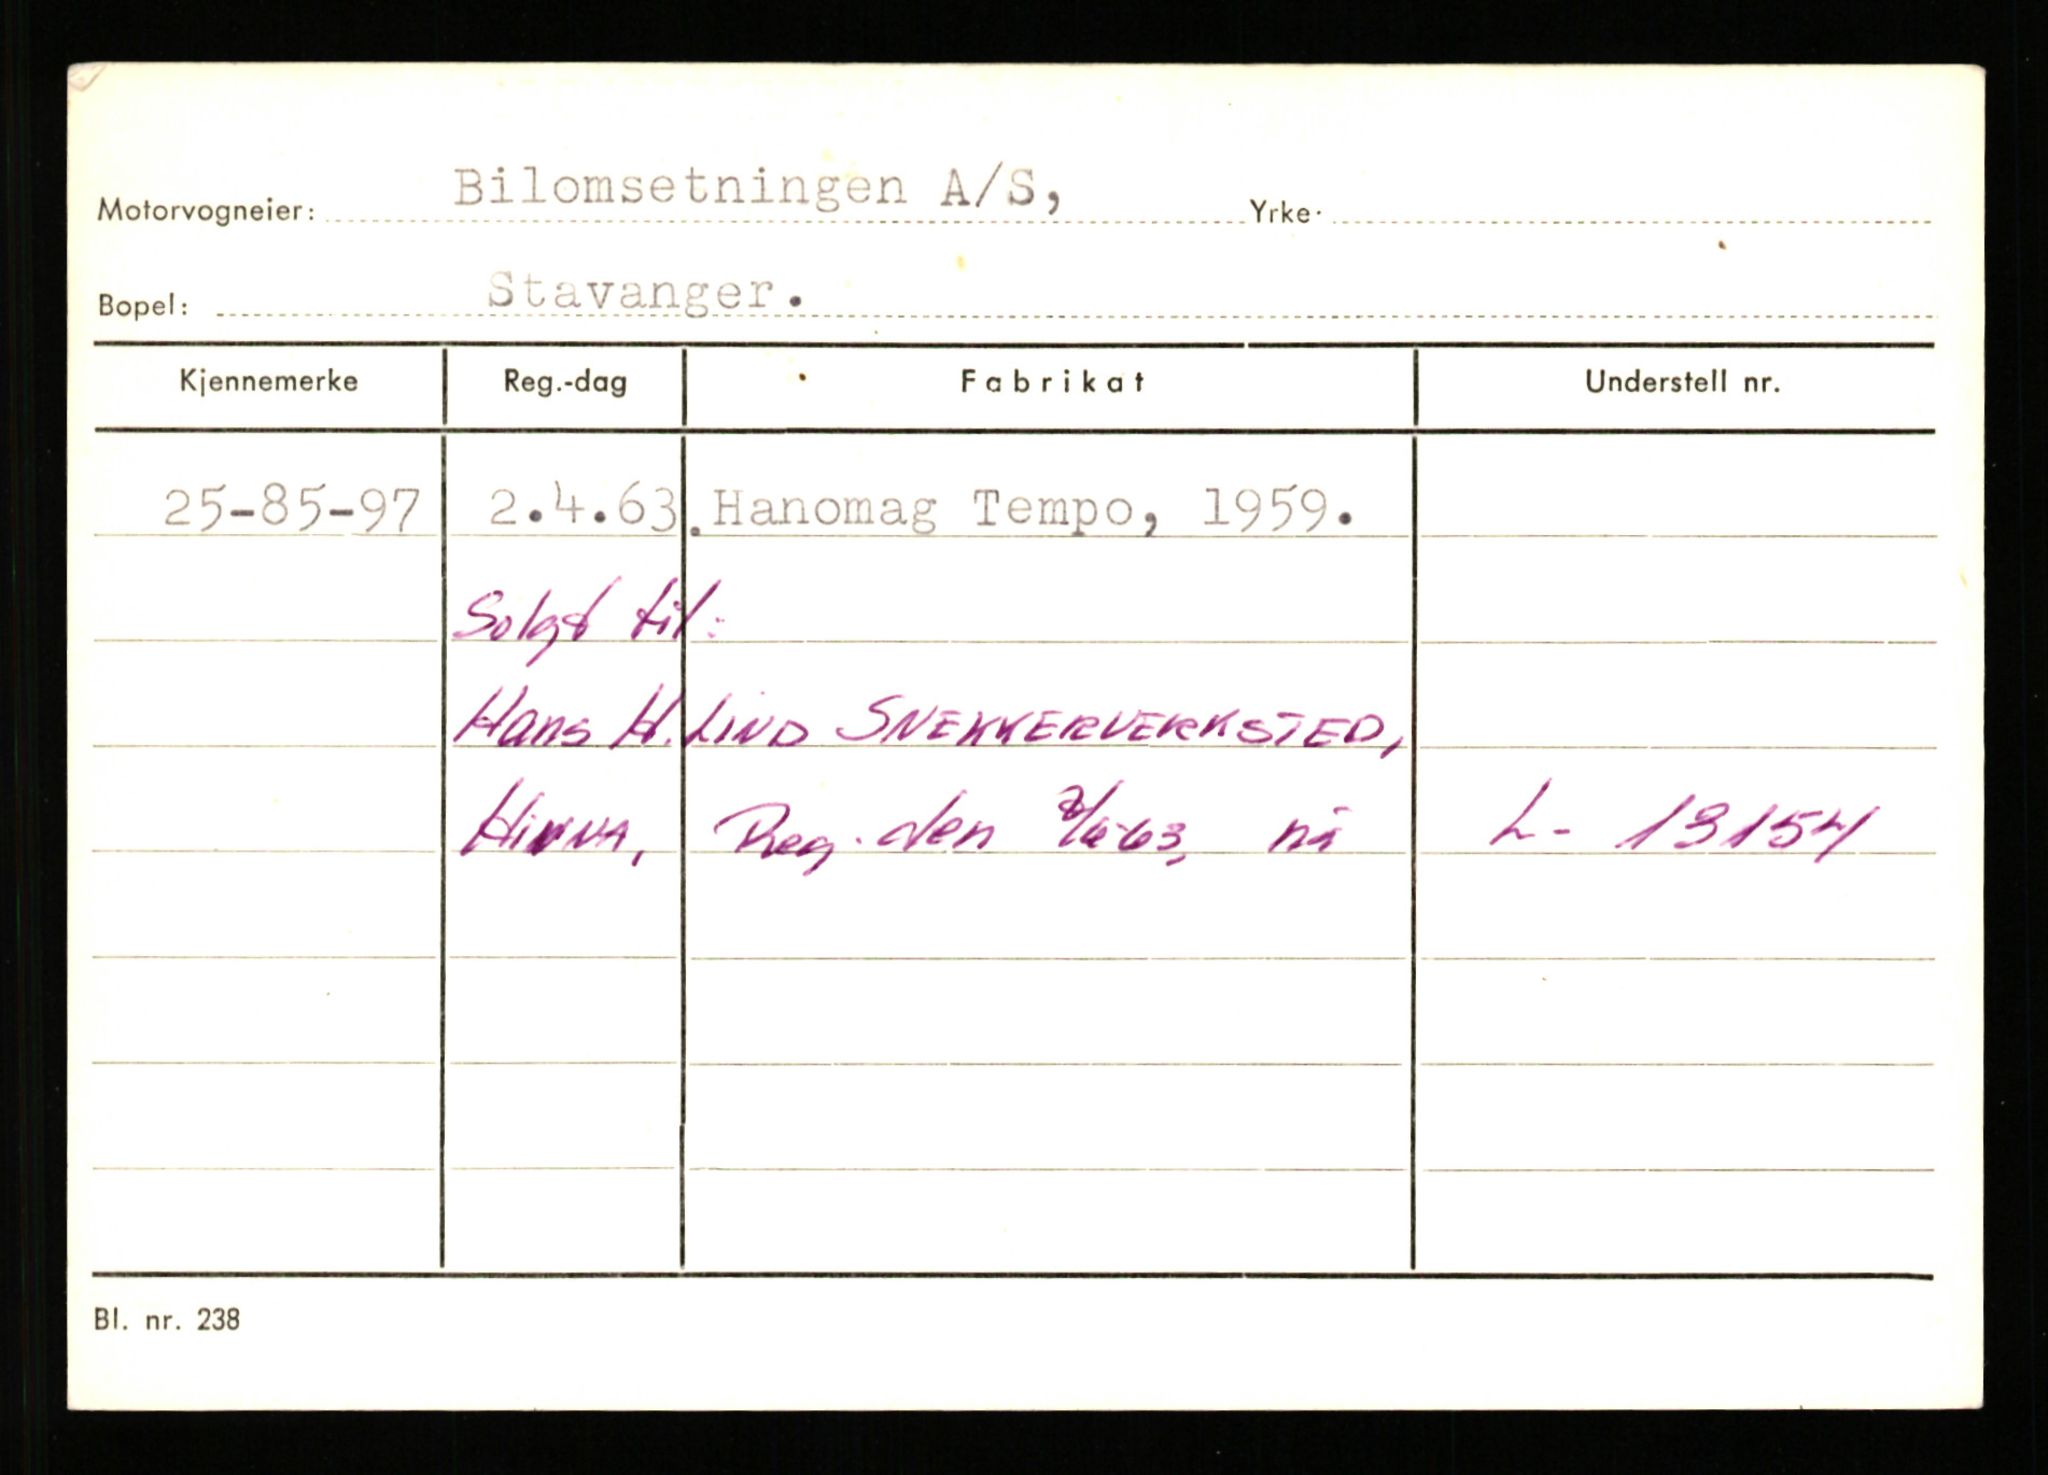 Motorvogneier: Bilomsetningen A/S, Yrke:
Bopel: Stavanger.
Kjennemerke Reg.-dag Fabrikat Understell nr.
25-85-97 2.4.63. Hanomag Tempo, 1959.
Solgt til:
Hans H. LIND SNEKKERVERKSTED,
HINNA, Reg. den nå L- 13154
Bl. nr. 238